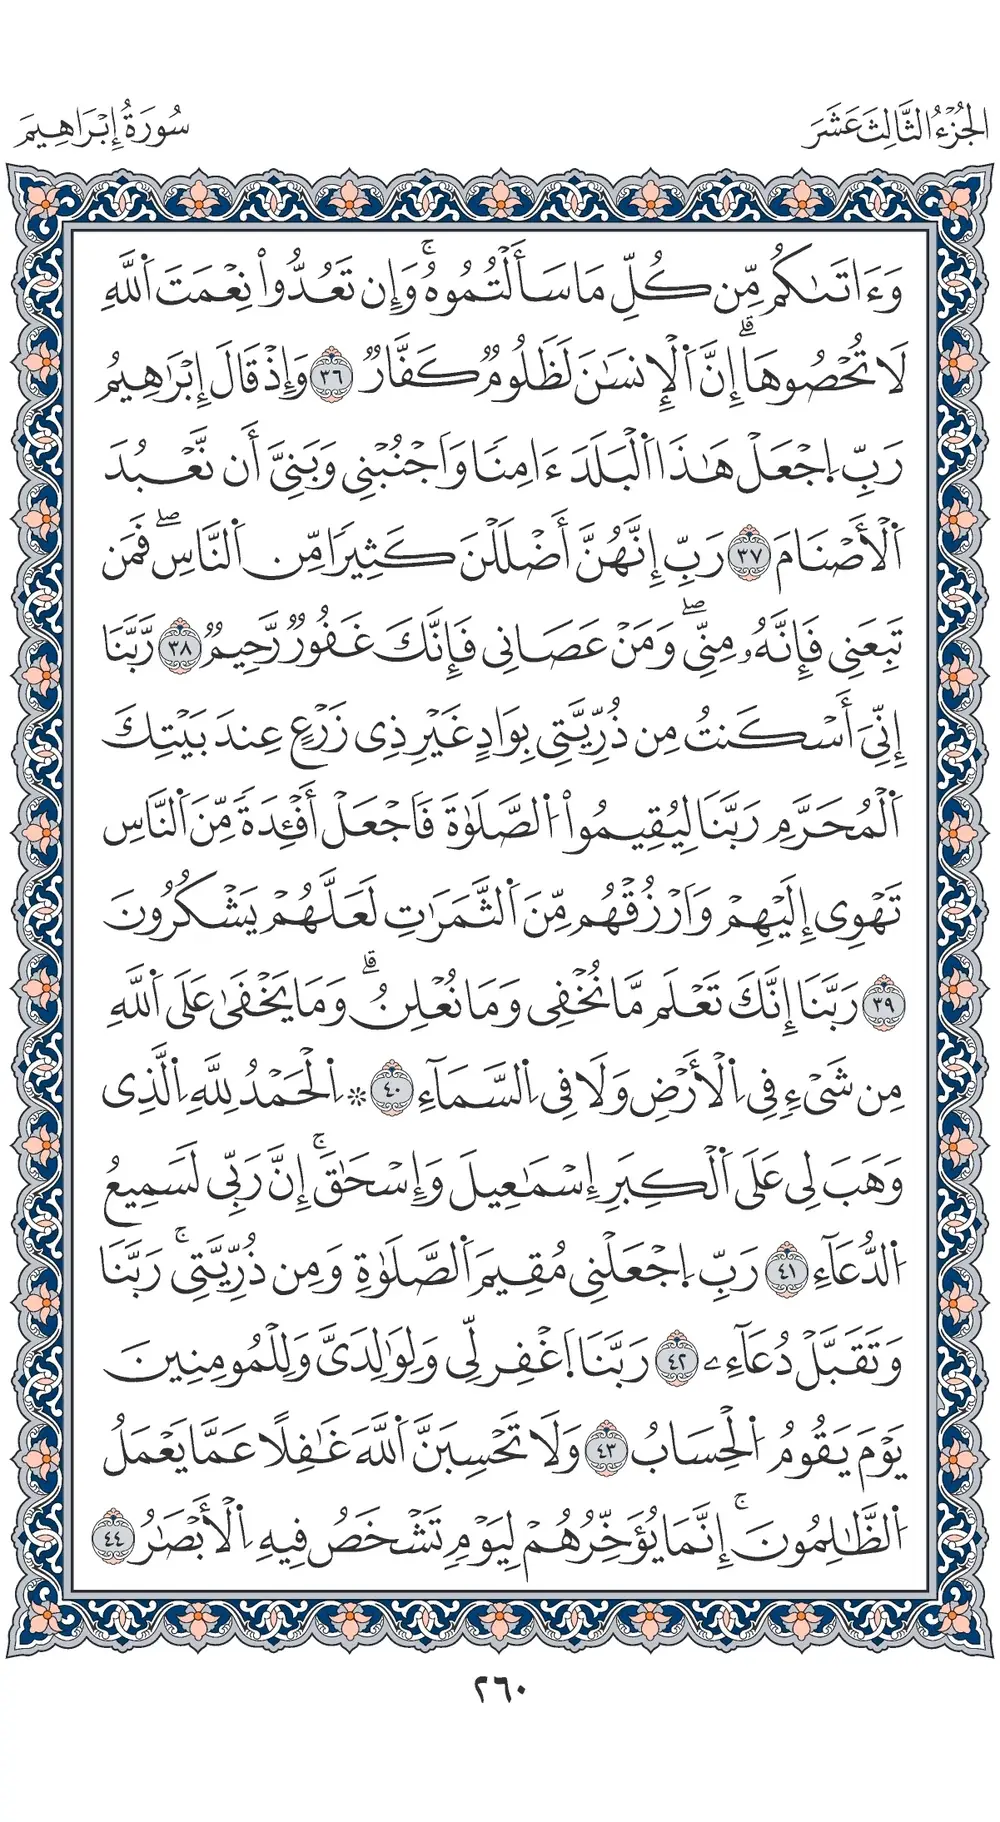 الجُزْءُ الثَّالِثَ عَشَرَ
سُورَةُ إِبْرَاهِيمَ
وَءَاتَىٰكُم مِّن كُلِّ مَا سَأَلْتُمُوهُۚ وَإِن تَعُدُّواْ نِعْمَتَ اَ۬للَّهِ
لَا تُحْصُوهَاۗ إِنَّ اَ۬لْإِنسَٰنَ لَظَلُومٌ كَفَّارٌ ٣٦ وَإِذْ قَالَ إِبْرَٰهِيمُ
رَبِّ اِ۪جْعَلْ هَٰذَا اَ۬لْبَلَدَ ءَامِنًا وَاَجْنُبْنِي وَبَنِيَّ أَن نَّعْبُدَ
اَ۬لْأَصْنَامَ ٣٧ رَبِّ إِنَّهُنَّ أَضْلَلْنَ كَثِيرًا مِّنَ اَ۬لنَّاسِۖ فَمَن
تَبِعَنِي فَإِنَّهُۥ مِنِّيۖ وَمَنْ عَصَانِي فَإِنَّكَ غَفُورٌ رَّحِيمٌ ٣٨ رَّبَّنَا
إِنِّيَ أَسْكَنتُ مِن ذُرِّيَّتِي بِوَادٍ غَيْرِ ذِي زَرْعٍ عِندَ بَيْتِكَ
اَ۬لْمُحَرَّمِ رَبَّنَا لِيُقِيمُواْ اُ۬لصَّلَوٰةَ فَاَجْعَلْ أَفْـِٔدَةً مِّنَ اَ۬لنَّاسِ
تَهْوِي إِلَيْهِمْ وَاَرْزُقْهُم مِّنَ اَ۬لثَّمَرَٰتِ لَعَلَّهُمْ يَشْكُرُونَ
٣٩ رَبَّنَا إِنَّكَ تَعْلَم مَّا نُخْفِي وَمَا نُعْلِنُۗ وَمَا يَخْفَىٰ عَلَى اَ۬للَّهِ
مِن شَيْءٍ فِي اِ۬لْأَرْضِ وَلَا فِي اِ۬لسَّمَآءِ ٤٠ ۞ اِ۬لْحَمْدُ لِلَّهِ اِ۬لَّذِي
وَهَبَ لِي عَلَى اَ۬لْكِبَرِ إِسْمَٰعِيلَ وَإِسْحَٰقَۚ إِنَّ رَبِّي لَسَمِيعُ
اُ۬لدُّعَآءِ ٤١ رَبِّ اِ۪جْعَلْنِي مُقِيمَ اَ۬لصَّلَوٰةِ وَمِن ذُرِّيَّتِيۚ رَبَّنَا
وَتَقَبَّلْ دُعَآءِۦ ٤٢ رَبَّنَا اَ۪غْفِر لِّي وَلِوَٰلِدَيَّ وَلِلْمُومِنِينَ
يَوْمَ يَقُومُ اُ۬لْحِسَابُ ٤٣ وَلَا تَحْسِبَنَّ اَ۬للَّهَ غَٰفِلًا عَمَّا يَعْمَلُ
اُ۬لظَّٰلِمُونَۚ إِنَّمَا يُؤَخِّرُهُمْ لِيَوْمٍ تَشْخَصُ فِيهِ اِ۬لْأَبْصَٰرُ ٤٤
٢٦٠